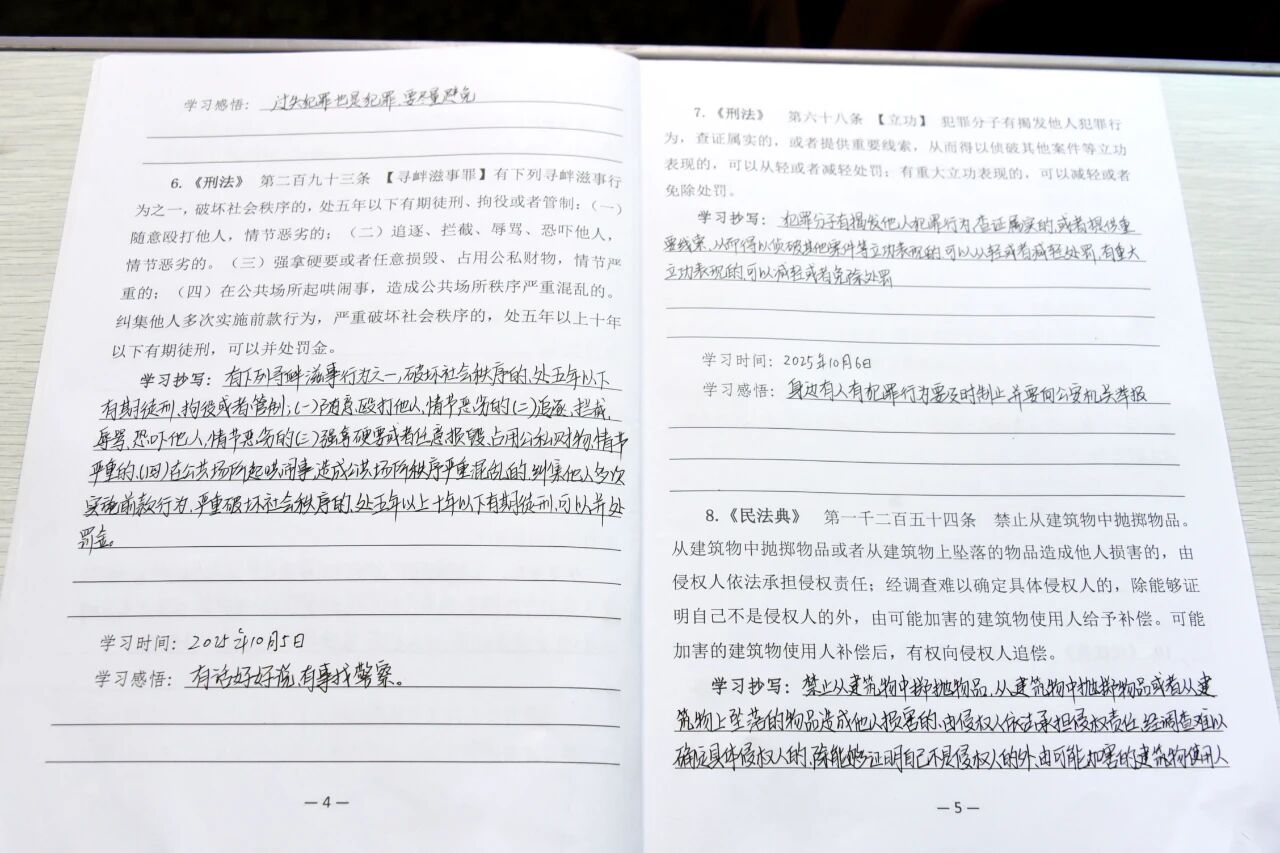 学习感悟：过失犯罪也是犯罪,要尽量避免
6.《刑法》 第二百九十三条 【寻衅滋事罪】有下列寻衅滋事行
为之一，破坏社会秩序的，处五年以下有期徒刑、拘役或者管制：（一）
随意殴打他人，情节恶劣的；（二）追逐、拦截、辱骂、恐吓他人，
情节恶劣的。（三）强拿硬要或者任意损毁、占用公私财物，情节严
重的；（四）在公共场所起哄闹事，造成公共场所秩序严重混乱的。
纠集他人多次实施前款行为，严重破坏社会秩序的，处五年以上十年
以下有期徒刑，可以并处罚金。
学习抄写：有下列寻衅滋事行为之一,破坏社会秩序的,处五年以下
有期徒刑,拘役或者管制;(一)随意殴打他人,情节恶劣的(二)追逐,拦截,
辱骂,恐吓他人,情节恶劣的(三)强拿硬要或者任意损毁、占用公私财物,情节
严重的,(四)在公共场所起哄闹事,造成公共场所秩序严重混乱的,纠集他人多次
实施前款行为,严重破坏社会秩序的,处五年以上十年以下有期徒刑,可以并处
罚金。
学习时间：2025年10月5日
学习感悟：有话好好说,有事找警察。
— 4 —
7.《刑法》 第六十八条 【立功】 犯罪分子有揭发他人犯罪行
为，查证属实的，或者提供重要线索，从而得以侦破其他案件等立功
表现的，可以从轻或者减轻处罚；有重大立功表现的，可以减轻或者
免除处罚。
学习抄写：犯罪分子有揭发他人犯罪行为,查证属实的,或者提供重
要线索,从而得以侦破其他案件等立功表现的,可以从轻或者减轻处罚,有重大
立功表现的,可以减轻或者免除处罚
学习时间：2025年10月6日
学习感悟：身边有人有犯罪行为要及时制止,并要向公安机关举报
8.《民法典》 第一千二百五十四条 禁止从建筑物中抛掷物品。
从建筑物中抛掷物品或者从建筑物上坠落的物品造成他人损害的，由
侵权人依法承担侵权责任；经调查难以确定具体侵权人的，除能够证
明自己不是侵权人的外，由可能加害的建筑物使用人给予补偿。可能
加害的建筑物使用人补偿后，有权向侵权人追偿。
学习抄写：禁止从建筑物中掷抛物品,从建筑物中抛掷物品或者从建
筑物上坠落的物品造成他人损害的,由侵权人依法承担侵权责任,经调查难以
确定具体侵权人的,除能够证明自己不是侵权人的外,由可能加害的建筑物使用人
— 5 —